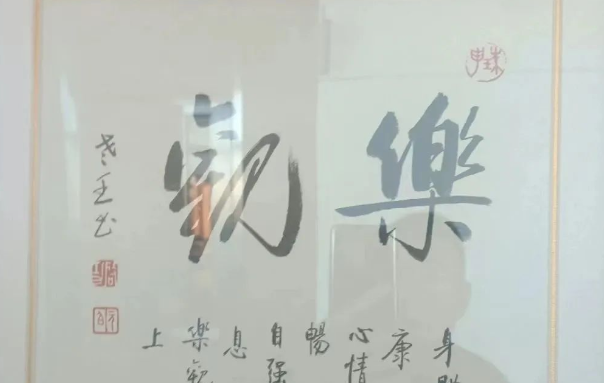 樂觀
身
康
心情
暢
自强
息
樂觀
上